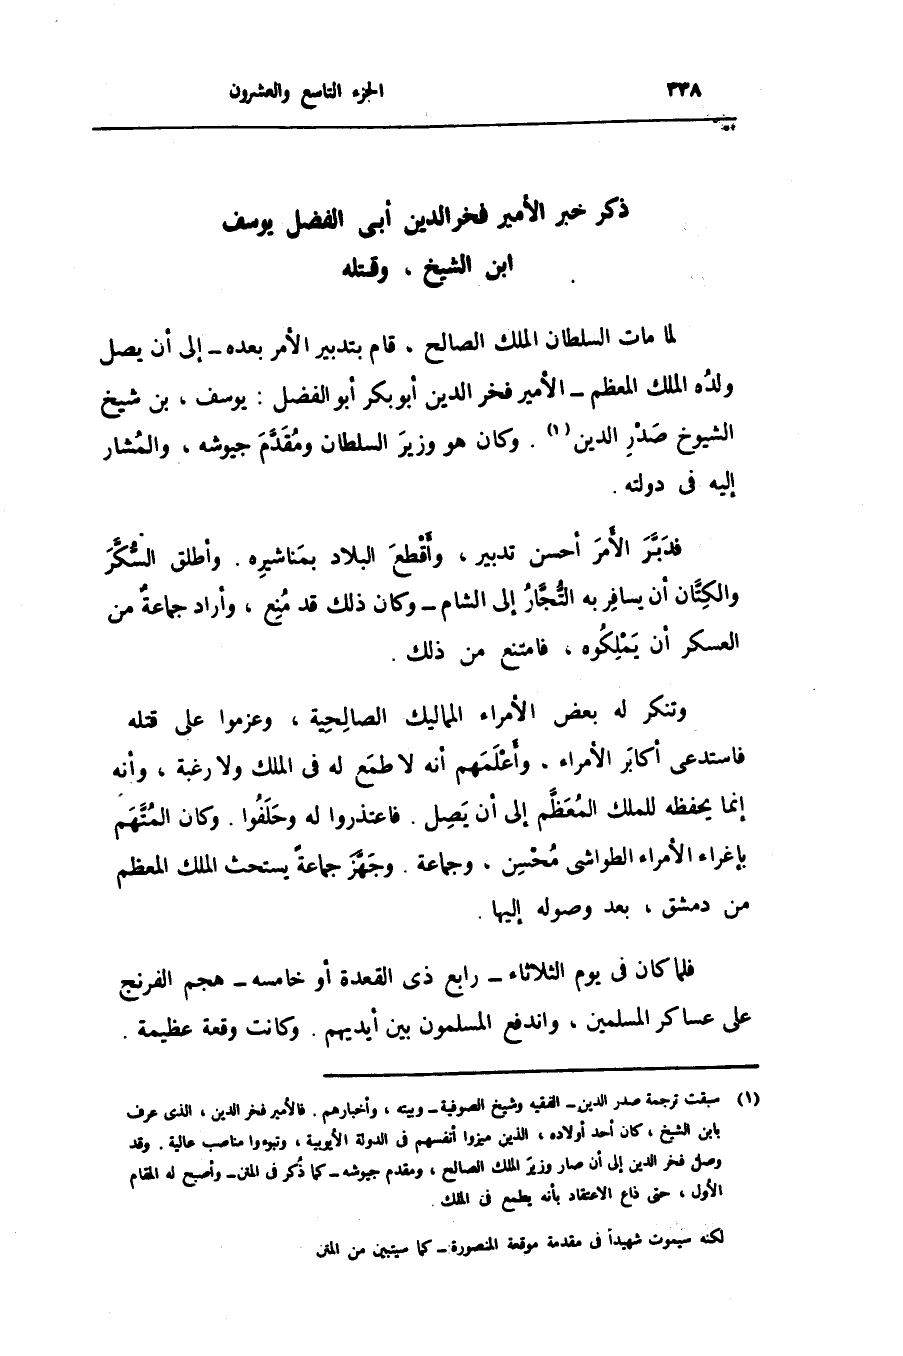 ٣٣٨ الجزء التاسع والعشرون
ذكر خبر الأمير فخرالدين أبى الفضل يوسف
ابن الشيخ ، وقتله
لما مات السلطان الملك الصالح ، قام بتدبير الأمر بعده ــ إلى أن يصل
ولدُه الملك المعظم ــ الأمير فخر الدين أبو بكر أبو الفضل : يوسف ، بن شيخ
الشيوخ صَدْرِ الدين (١) . وكان هو وزيرَ السلطان ومُقَدَّمَ جيوشه ، والمُشار
إليه فى دولته .
فدَبَّرَ الأَمرَ أحسن تدبير ، وأَقْطعَ البلاد بمَناشيرِه . وأطلق السُّكَّرَ
والكِتَّان أن يسافِر به التُّجَّارُ إلى الشام ــ وكان ذلك قد مُنِع ، وأراد جماعةٌ من
العسكر أن يَمْلِكُوه ، فامتنع من ذلك .
وتنكر له بعض الأمراء المماليك الصالِحِية ، وعزموا على قتله
فاستدعى أكابَر الأمراء . وأَعْلَمَهم أنه لا طمَع له فى الملك ولا رغبة ، وأنه
إنما يحفظه للملك المُعَظَّم إلى أن يَصِل . فاعتذروا له وحَلَفُوا . وكان المُتَّهَم
بإغراء الأمراء الطواشى مُحْسِن ، وجماعة . وجَهَّزَ جماعةً يستحث الملك المعظم
من دمشق ، بعد وصوله إليها .
فلما كان فى يوم الثلاثاء ــ رابع ذى القعدة أو خامسه ــ هجم الفرنج
على عساكر المسلمين ، واندفع المسلمون بين أيديهم . وكانت وقعة عظيمة .
(١) سبقت ترجمة صدر الدين ــ الفقيه وشيخ الصوفية ــ وبيته ، وأخبارهم . فالأمير فخر الدين ، الذى عرف
بابن الشيخ ، كان أحد أولاده ، الذين ميزوا أنفسهم فى الدولة الأيوبية ، وتبوءوا مناصب عالية . وقد
وصل فخر الدين إلى أن صار وزيرَ الملك الصالح ، ومقدم جيوشه ــ كما ذُكر فى المتن ــ وأصبح له المقام
الأول ، حتى ذاع الاعتقاد بأنه يطمع فى الملك .
لكنه سيموت شهيداً فى مقدمة موقعة المنصورة ــ كما سيتبين من المتن